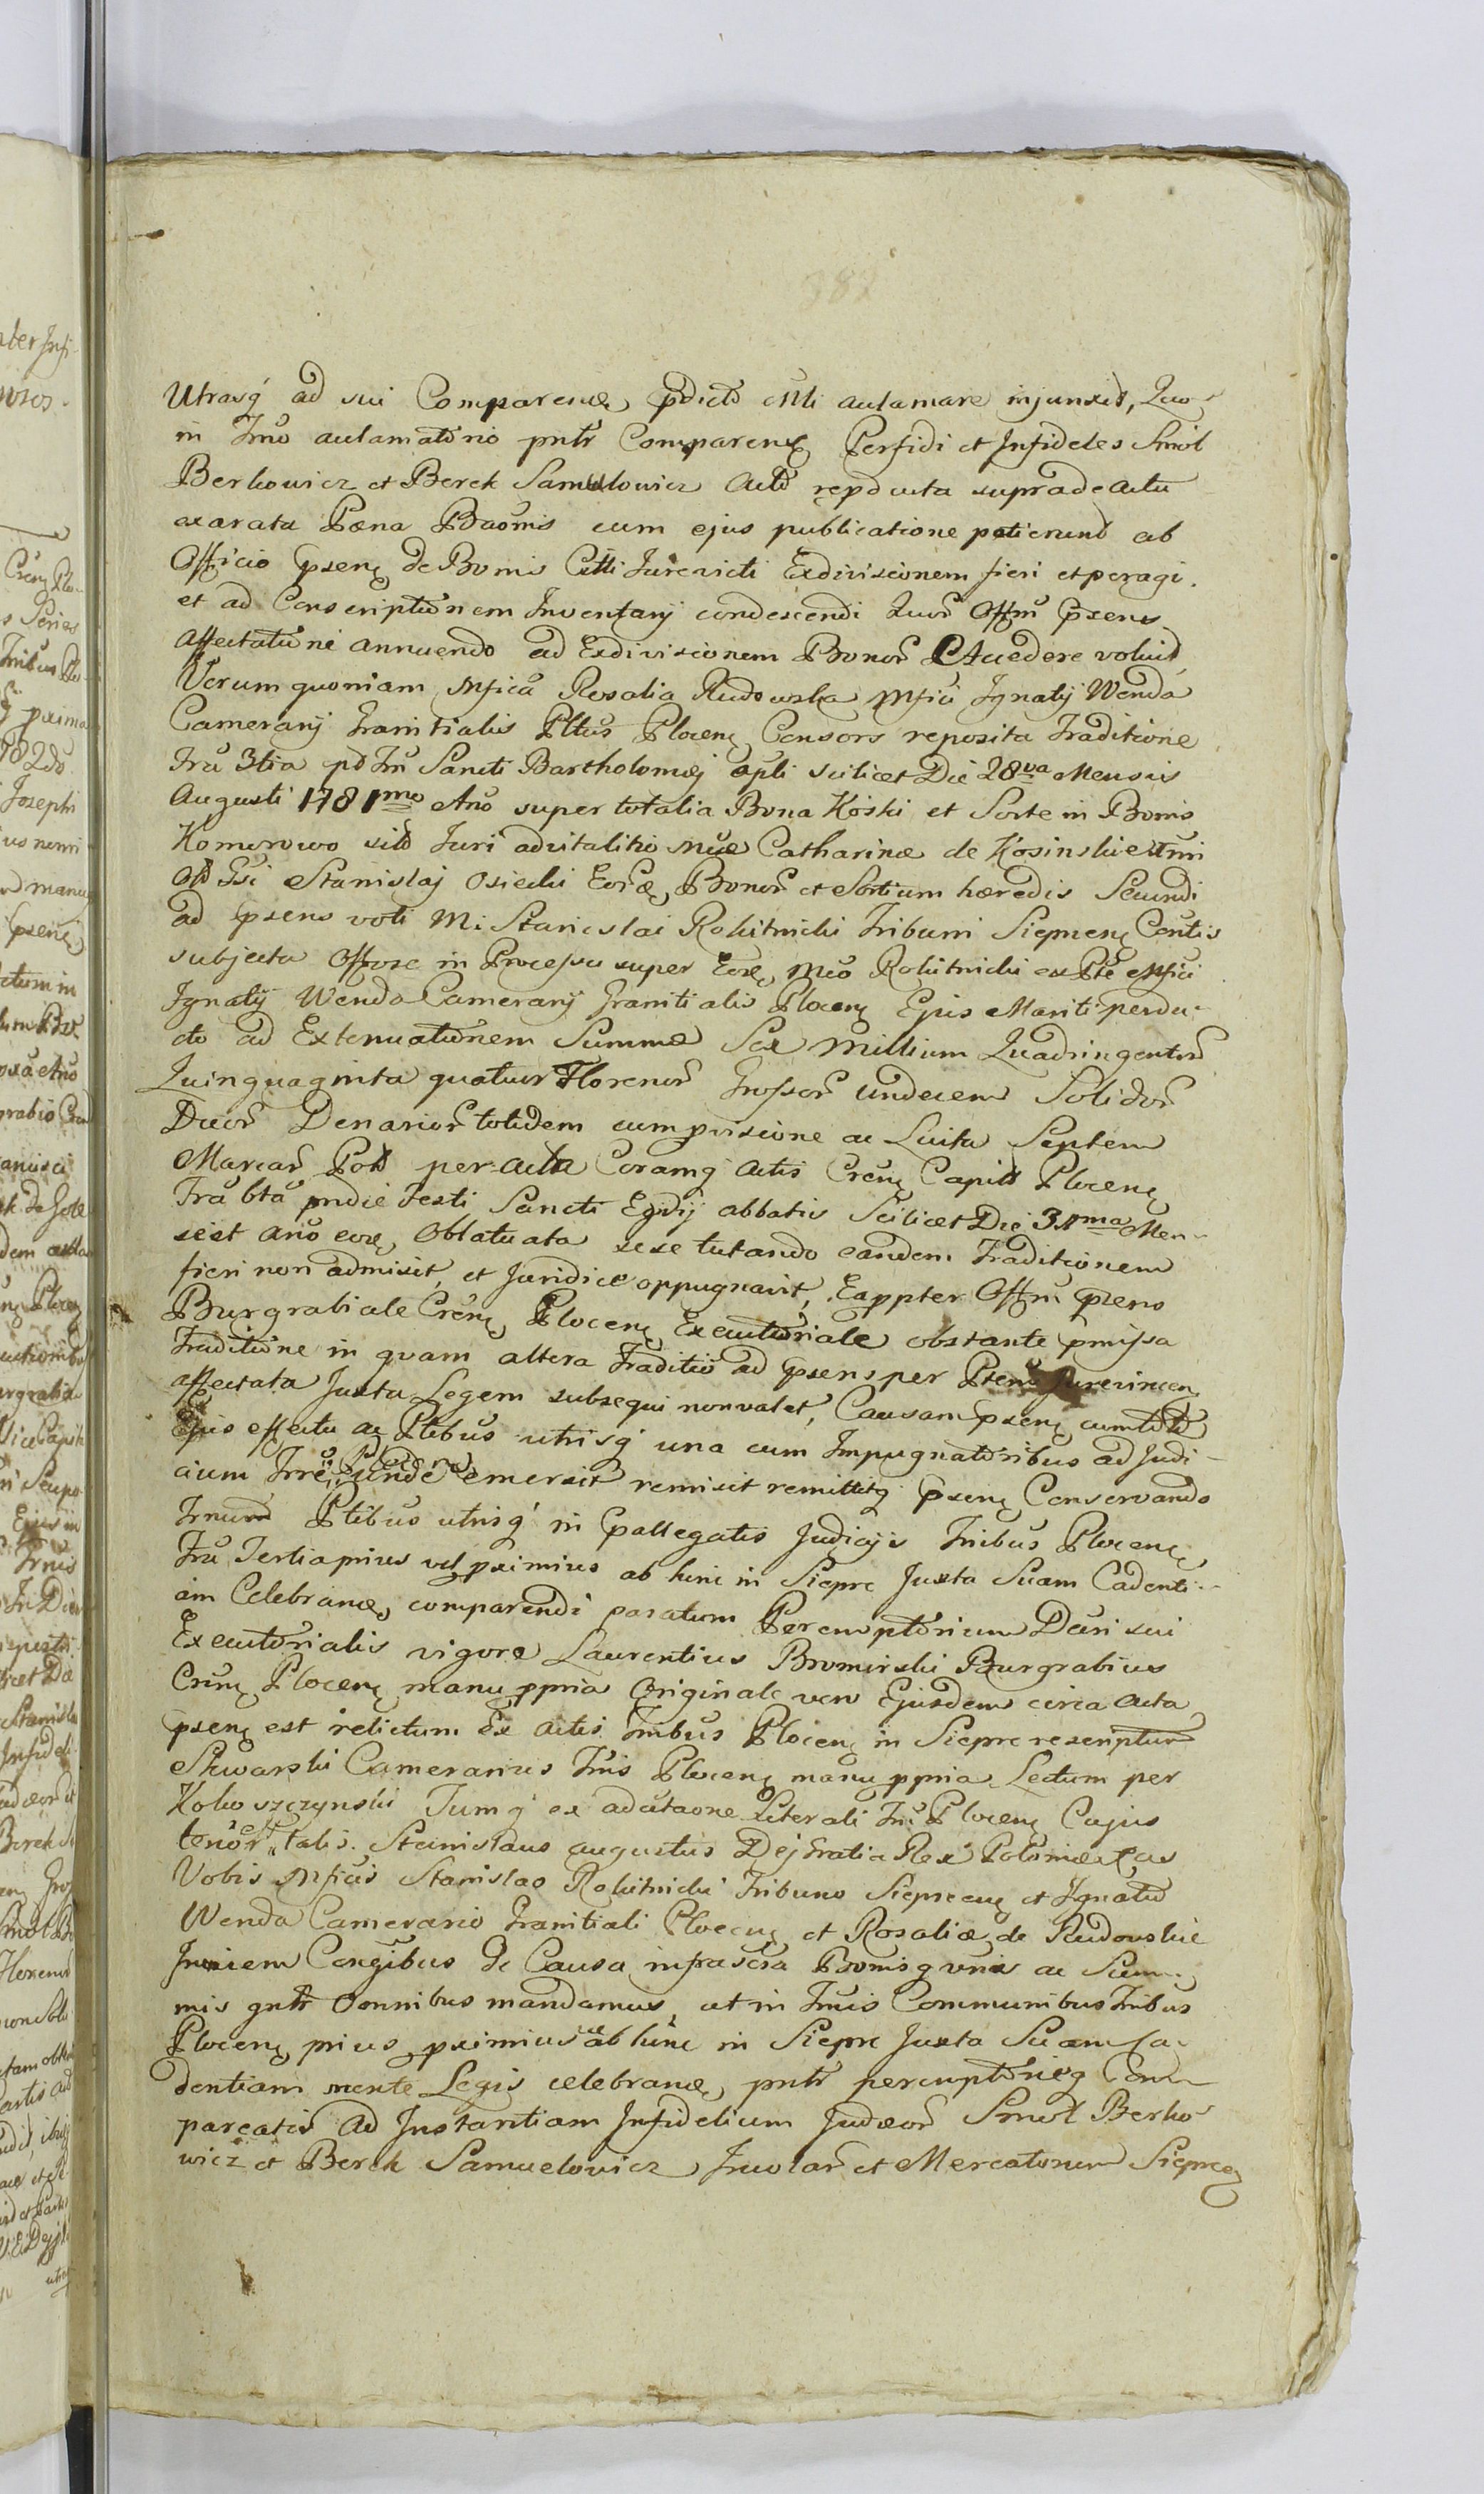 Utrasq́ ad sui Comparenę pdictõ Mti aclamare injunxit, Quo
in Trno aclamatõrio pntr Comparenę Perfidi et Infideles Smol
Berkowicz et Berek Samulowicz Actõ repducta supra de actu
exarata Pœna Baõnis cum ejus publicatione petierunt ab
Officio psenę de Bonis Citti Jurevicti Exdivisionem fieri et peragi.
et ad Conscriptiõnem Inventarij condescendi Quor̃ Offm̃ psens
Affectatiõni annuendo ad Exdivisionem Bonor̃ Accedere voluit,
Verum quoniam Mfica Rosalia Rudowska Mfici Ignatij Wenda
Camerarij Granitialis Pltus Plocenę Consors reposita Traditione
Fra 3tia pd Fm̃ Sancti Bartholomæj apli scilicet Die 28va Mensis
Augusti 1781mo Año super totalia Bona Koski et Sorte in Bonis
Komorowo sitõ Juri advitalitio Mcæ Catharinæ de Kosinskie
Gsi Stanislaj Osiecki Eor̃æ, Bonor̃ et Sortium hæredis Secundi
ad psens voti M. Stanislai Rokitnicki Tribuni Siepręnę Contis
subjecta Offose in Processu super Eor̃ę, Mco Rokitnicki ex Pte Mfici
Ignatij Wenda Camerarij Granitialis Plocenę Ejus Mariti perdu-
cto ad Extenuatiõnem Summæ Sex Millium Quadringentor̃
Quinquaginta quatuor Florenor̃ Grossor̃ undecem Solidor̃
Duor̃ Denarior̃ totidem cumprisione ac Luita Septem
Marcar̃ Pol̃ per acta Coramq́ Actis Crenę Capitl Plocenę
Fra 6ta pridie Festi Sancti Egidij abbatis Scilicet Die 31ma Men-
sis et año eor̃ę, Oblatuata sese tutando eandem Traditionem
fieri non admisit, et Juridicè oppugnavit, Eappter Offm̃ psens
Burgrabiale Crenę Plocenę Executõriale obstante pmissa
Traditiõne in quam altera Traditio ad psens per Ptem Jurevincen
affectata Juxta Legem subsequi non valet, Causam psenę cumtõtõ
Ejus effectu ac Ptibus utrisq́ una cum Impugnatõribus ad Judi-
cium Trre Plocens unde emersit remisit remittitq́ psenę Conservando
Trnum Ptibus utrisq́ in pallegatis Judicijs Tribus Plocenę
Fra Tertia prius vel pximius ab hinc in Siepre Juxta Suam Cadenti-
am Celebranę, comparendi paratum Peremptõrium Dčri sui
Executõrialis vigore Laurentius Bromirski Burgrabius
Crenę Plocenę manu ppria Originale vero Ejusdem circa Acta
psenę est relictum Ex Actis Tribus Plocenę in Siepre rescriptum
Skwarski Camerarius Tris Plocenę manu ppria Lectum per
Kokoszczynski Tumq́ ex adcitaone Literali Trs Plocenę Cujus
tenor est talis. Stanislaus Augustus Dej Gratia Rex Poloniæ &as
Vobis Mficis Stanislao Rokitnicki Tribuno Siepręenę et Ignatio
Wenda Camerario Granitiali Plocenę et Rosaliæ de Rudowskie
Invicem Congibus De Causa infrascta Bonisq́ vris ac Sum-
mis gntr omnibus mandamus, ut in Trnis Communibus Tribus
Plocenę prius pximiusve ab hinc in Siepre Juxta Suam Ca-
dentiam mente Legis celebranę, pntr peremptõrieq́ Com-
pareatis Ad Instantiam Infidelium Judæor̃ Smol Berko-
wicz et Berek Samuelowicz Incolar̃ et Mercatorum Siepręę